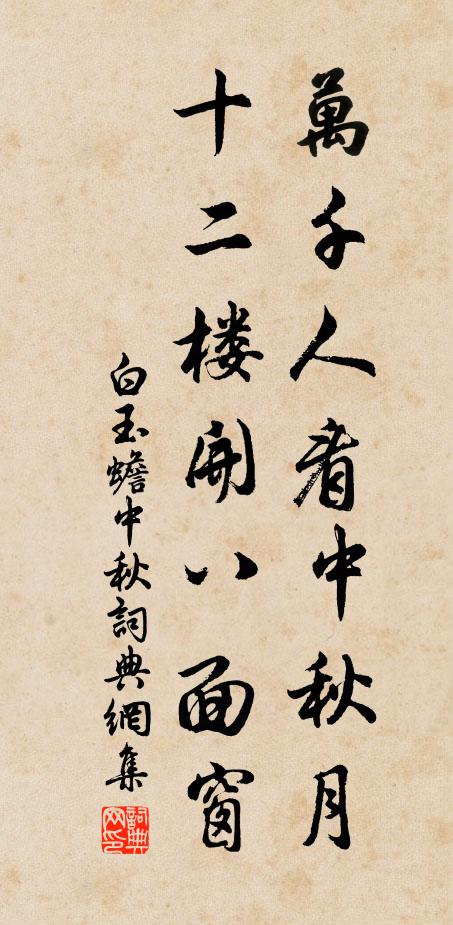 萬千人看中秋月
十二楼開八面窗
白玉蟾中秋詞典網集
詞典网印